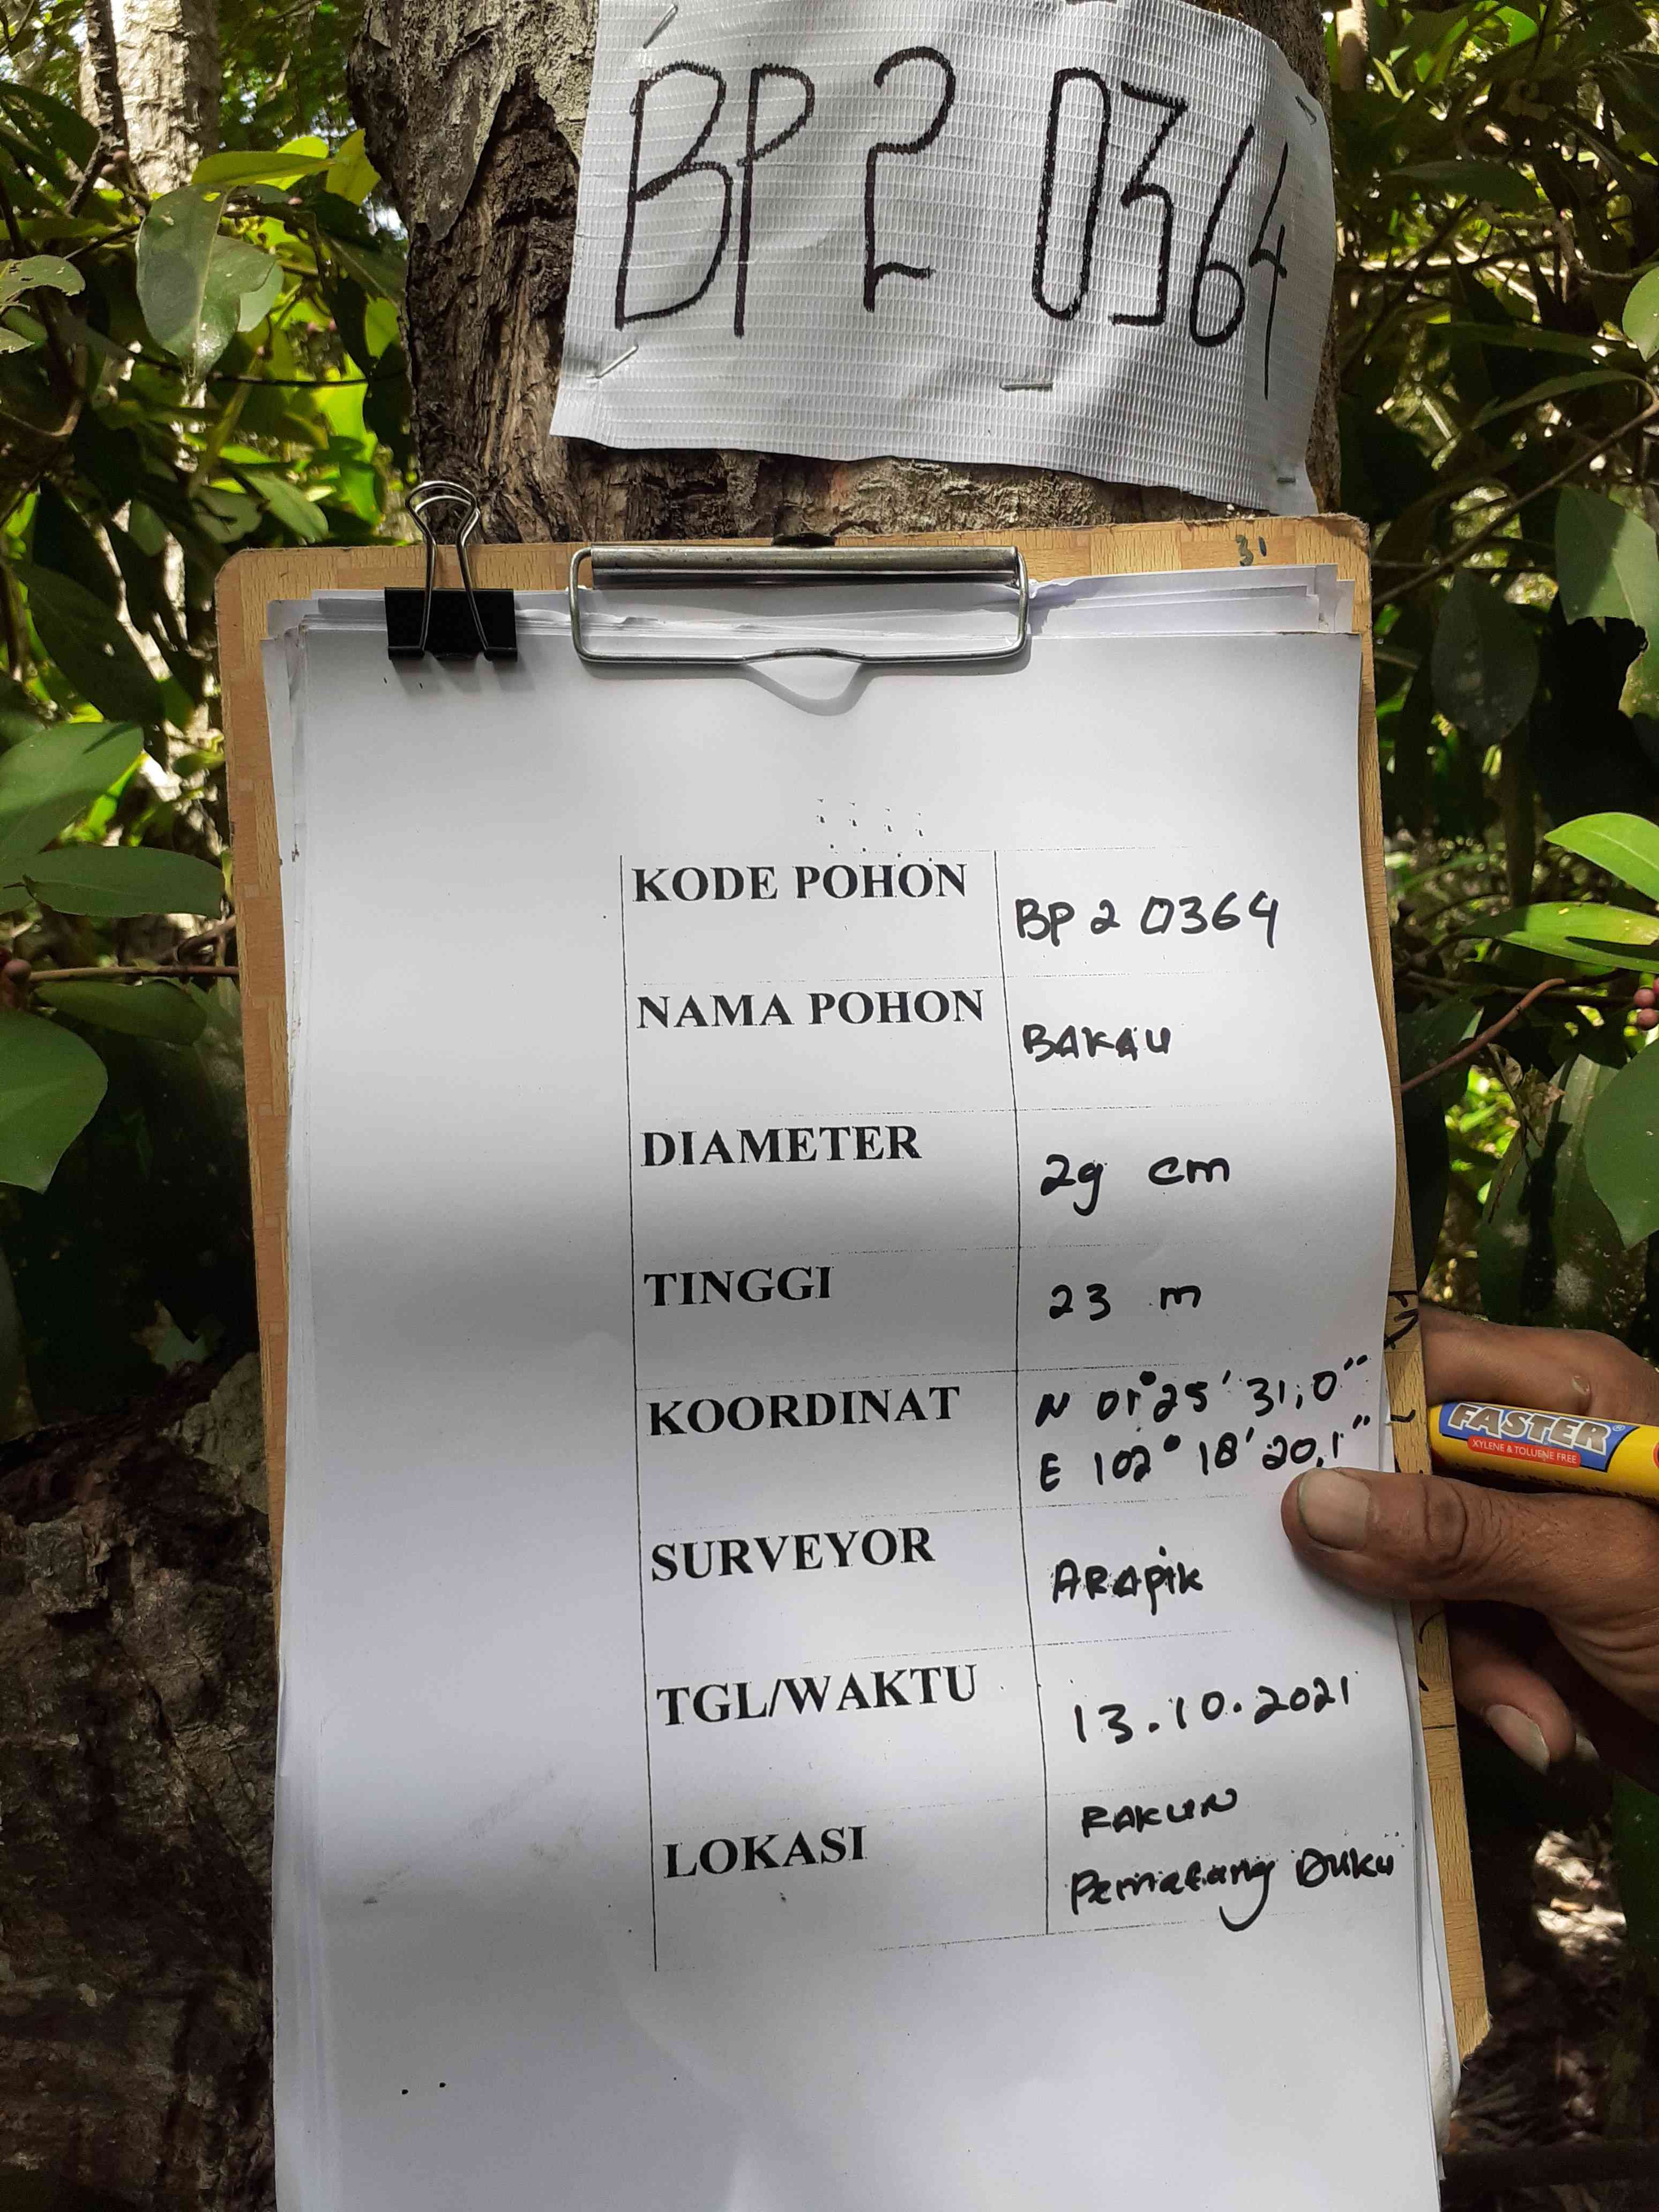 BP 2 0364
31
KODE POHON
BP 2 0364
NAMA POHON
BAKAU
DIAMETER
29 cm
TINGGI
23 m
KOORDINAT
N 01° 25' 31,0"
E 102° 18' 20,1"
SURVEYOR
ARAPIK
TGL/WAKTU
13.10.2021
LOKASI
RAKUN
Pematang Duku
FASTER
XYLENE & TOLUENE FREE